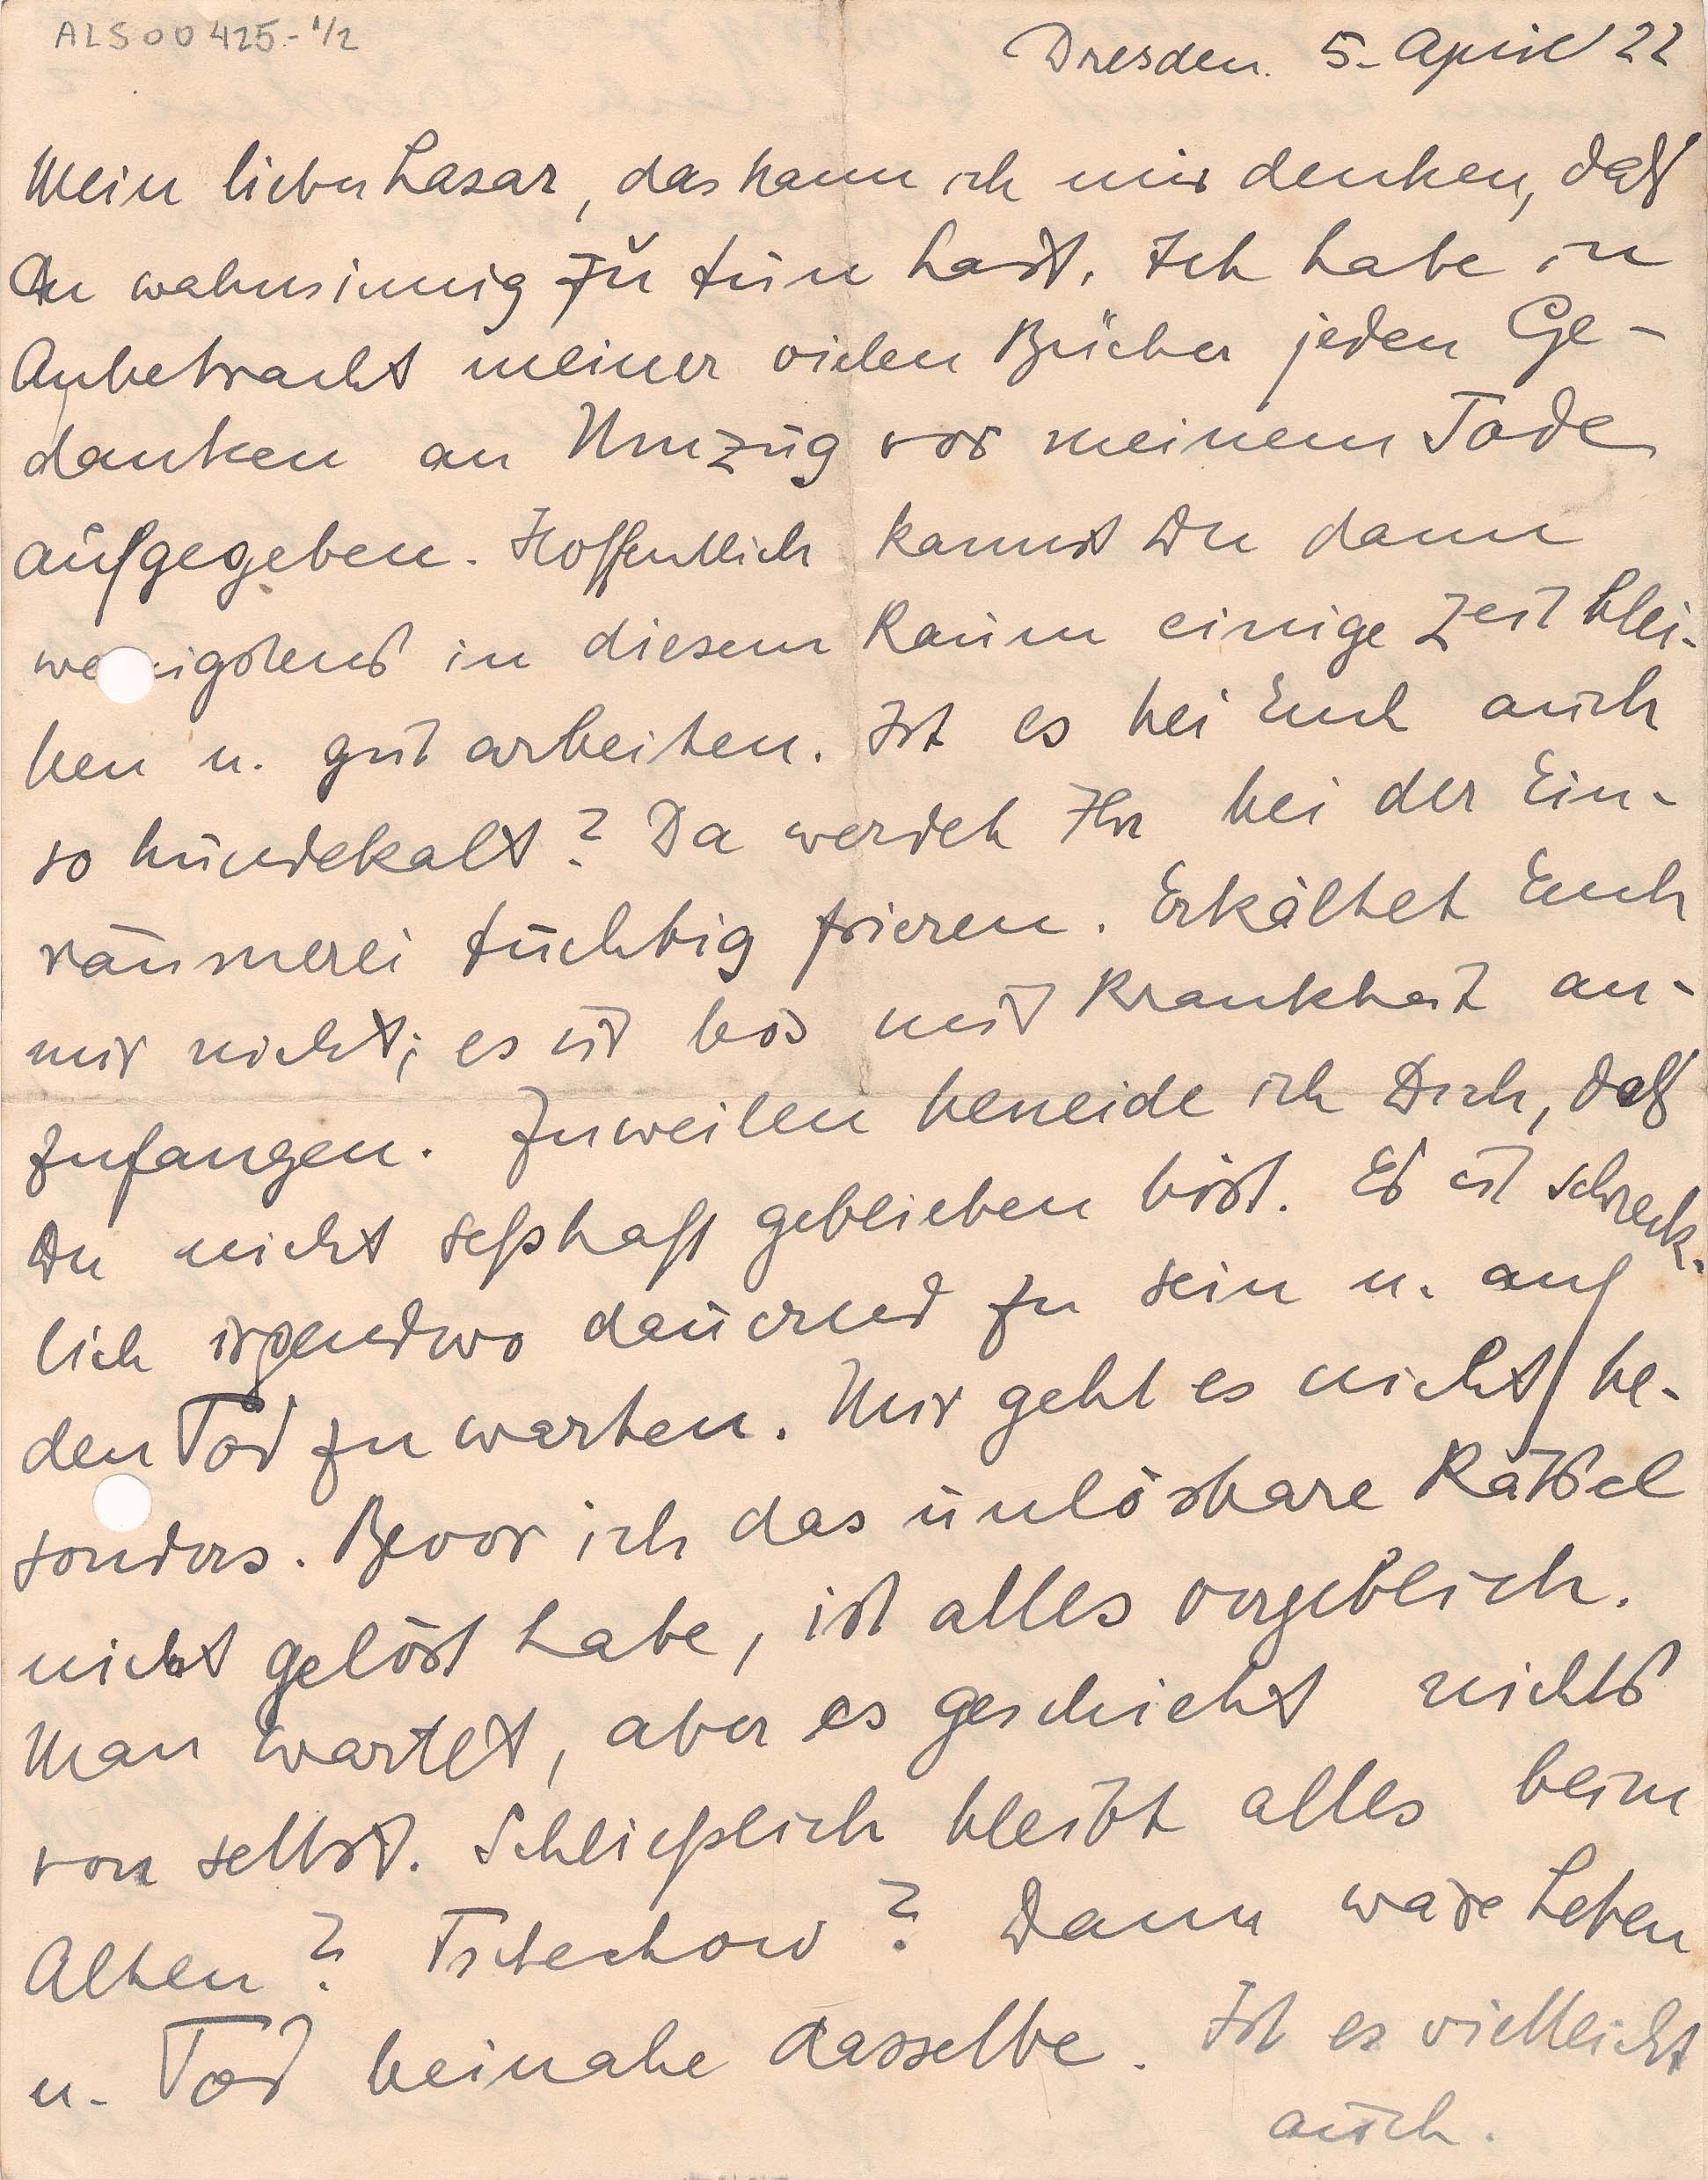 ALS 00425.-1/2
Dresden. 5. April 22
Mein lieber Lasar, das kann ich mir denken, daß
Du wahnsinnig zu tun hast. Ich habe in
Anbetracht meiner vielen Bücher jeden Ge-
danken an Umzug vor meinem Tode
aufgegeben. Hoffentlich kannst Du dann
wenigstens in diesem Raum einige Zeit blei-
ben u. gut arbeiten. Ist es bei Euch auch
so hundekalt? Da werdet Ihr bei der Ein-
räumerei tüchtig frieren. Erkältet Euch
mir nicht; es ist bös mit Krankheit an-
zufangen. Zuweilen beneide ich Dich, daß
Du nicht seßhaft geblieben bist. Es ist schreck-
lich irgendwo dauernd zu sein u. auf
den Tod zu warten. Mir geht es nicht be-
sonders. Bevor ich das unlösbare Rätsel
nicht gelöst habe, ist alles vergeblich.
Man wartet, aber es geschieht nichts
von selbst. Schließlich bleibt alles beim
Alten? Tschechow? Dann wäre Leben
u. Tod beinahe dasselbe. Ist es vielleicht
auch.